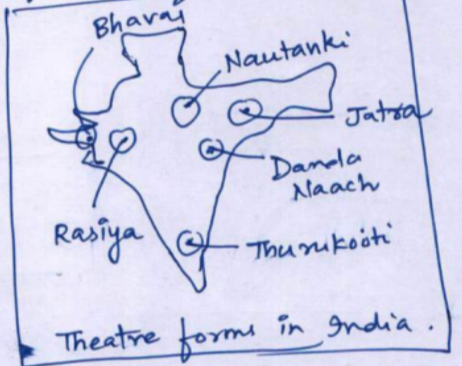 Bhavai
Nautanki
Jatra
Danda
Naach
Rasiya
Thurukooti
Theatre forms in India.